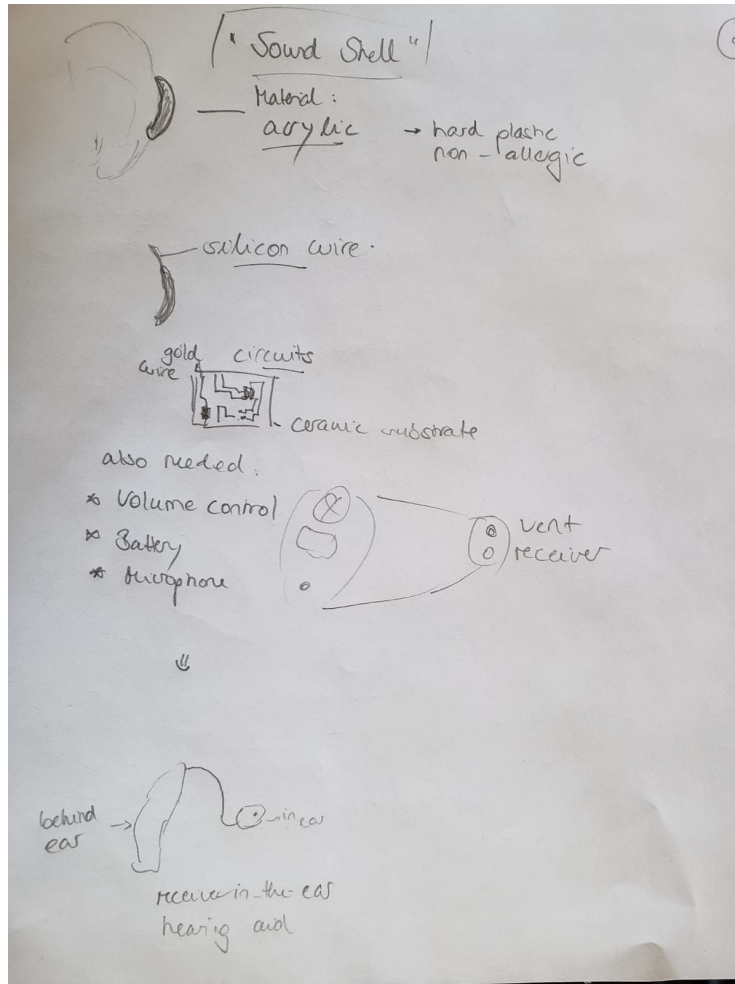 "Sound Shell"
Material:
acrylic → hard plastic
non-allergic
silicon wire.
gold
wire
circuits
ceramic substrate
also needed:
* Volume control
* Battery
* Microphone
vent
receiver
behind
ear
in ear
receiver-in-the-ear
hearing aid